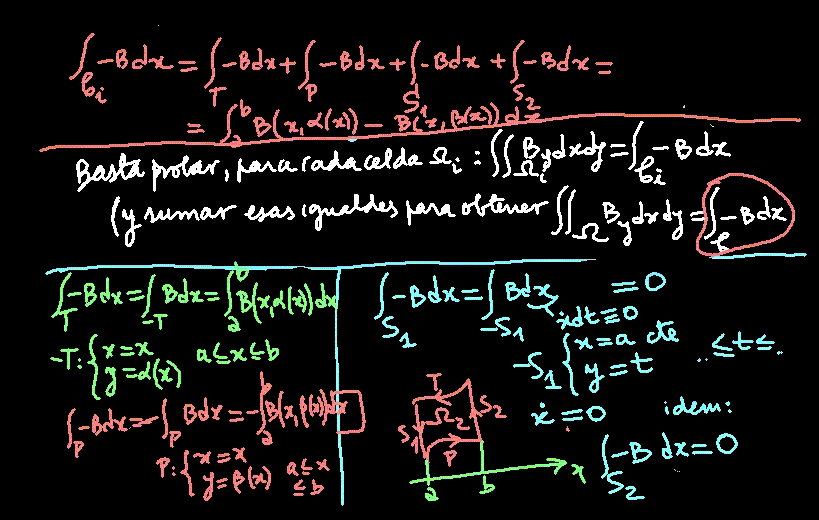 ∫_{𝒞i} -Bdx = ∫_T -Bdx + ∫_P -Bdx + ∫_{S1} -Bdx + ∫_{S2} -Bdx =
= ∫_a^b B(x,α(x)) - B(x,β(x)) dx
Basta probar, para cada celda Ωi : ∬_{Ωi} By dxdy = ∫_{𝒞i} -Bdx
(y sumar esas igualdes para obtener ∬_Ω By dxdy = ∫_𝒞 -Bdx
∫_T -Bdx = ∫_{-T} Bdx = ∫_a^b B(x,α(x))dx
-T: { x=x
y=α(x) a≤x≤b
∫_P -Bdx = -∫_P Bdx = -∫_a^b B(x,β(x))dx
P: { x=x a≤x
y=β(x) ≤b
∫_{S1} -Bdx = ∫_{-S1} Bdx = 0
ẋdt≡0
-S1 { x=a cte
y=t ..≤t≤..
ẋ=0 idem:
∫_{S2} -B dx=0
T
S1 Ω2 S2
P
a b x